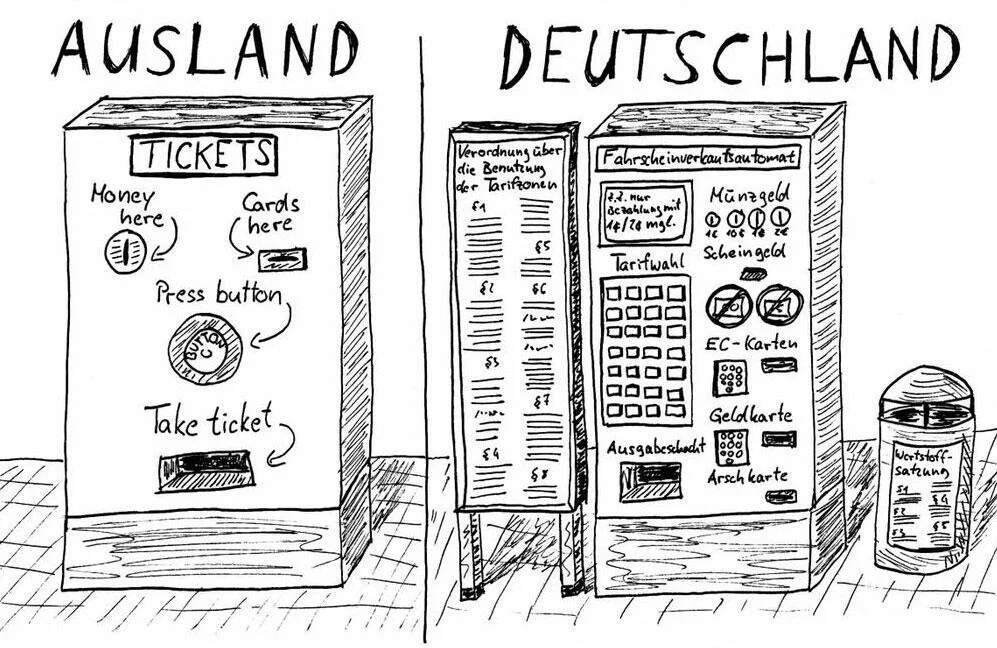 AUSLAND
TICKETS
Money
here
Cards
here
Press button
BUTTON
Take ticket
DEUTSCHLAND
Verordnung über
die Benutzung
der Tarifzonen
§1
§2
§3
§4
§5
§6
§7
§8
Fahrscheinverkaufsautomat
z.Z. nur
Bezahlung mit
1¢/2¢ mgl.
Tarifwahl
Ausgabeschacht
Münzgeld
1¢ 10¢ 1€ 2€
Scheingeld
EC-Karten
Geldkarte
Arschkarte
Wertstoff-
satzung
§1
§2
§3
§4
§5